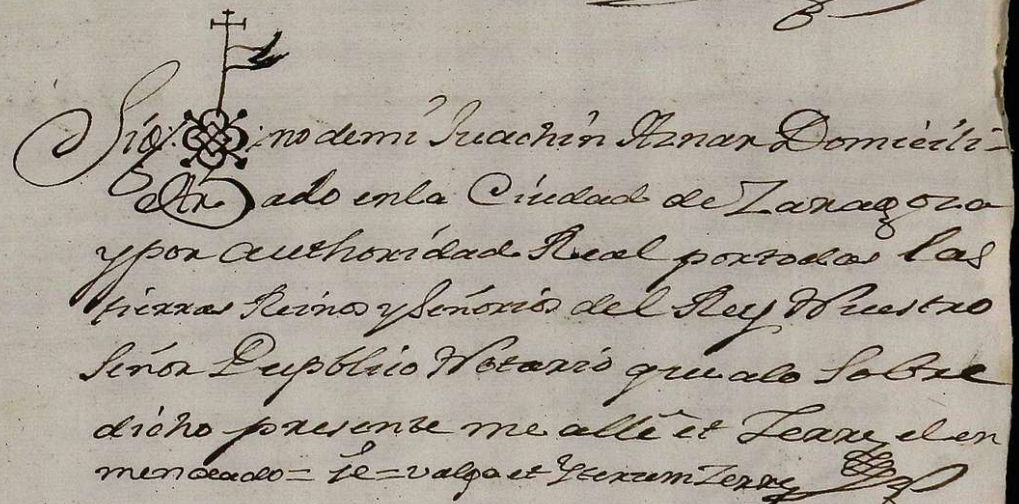 Sig no de mi Juachin Aznar Domicili=
ado en la Ciudad de Zaragoza
y por authoridad Real por todas las
tierras Reinos y Señorios del Rey Nuestro
Señor Pupblico Notario que a lo Sobre
dicho presente me allé et Zerre, el en
mendado = je = valga et Yterum Zerre